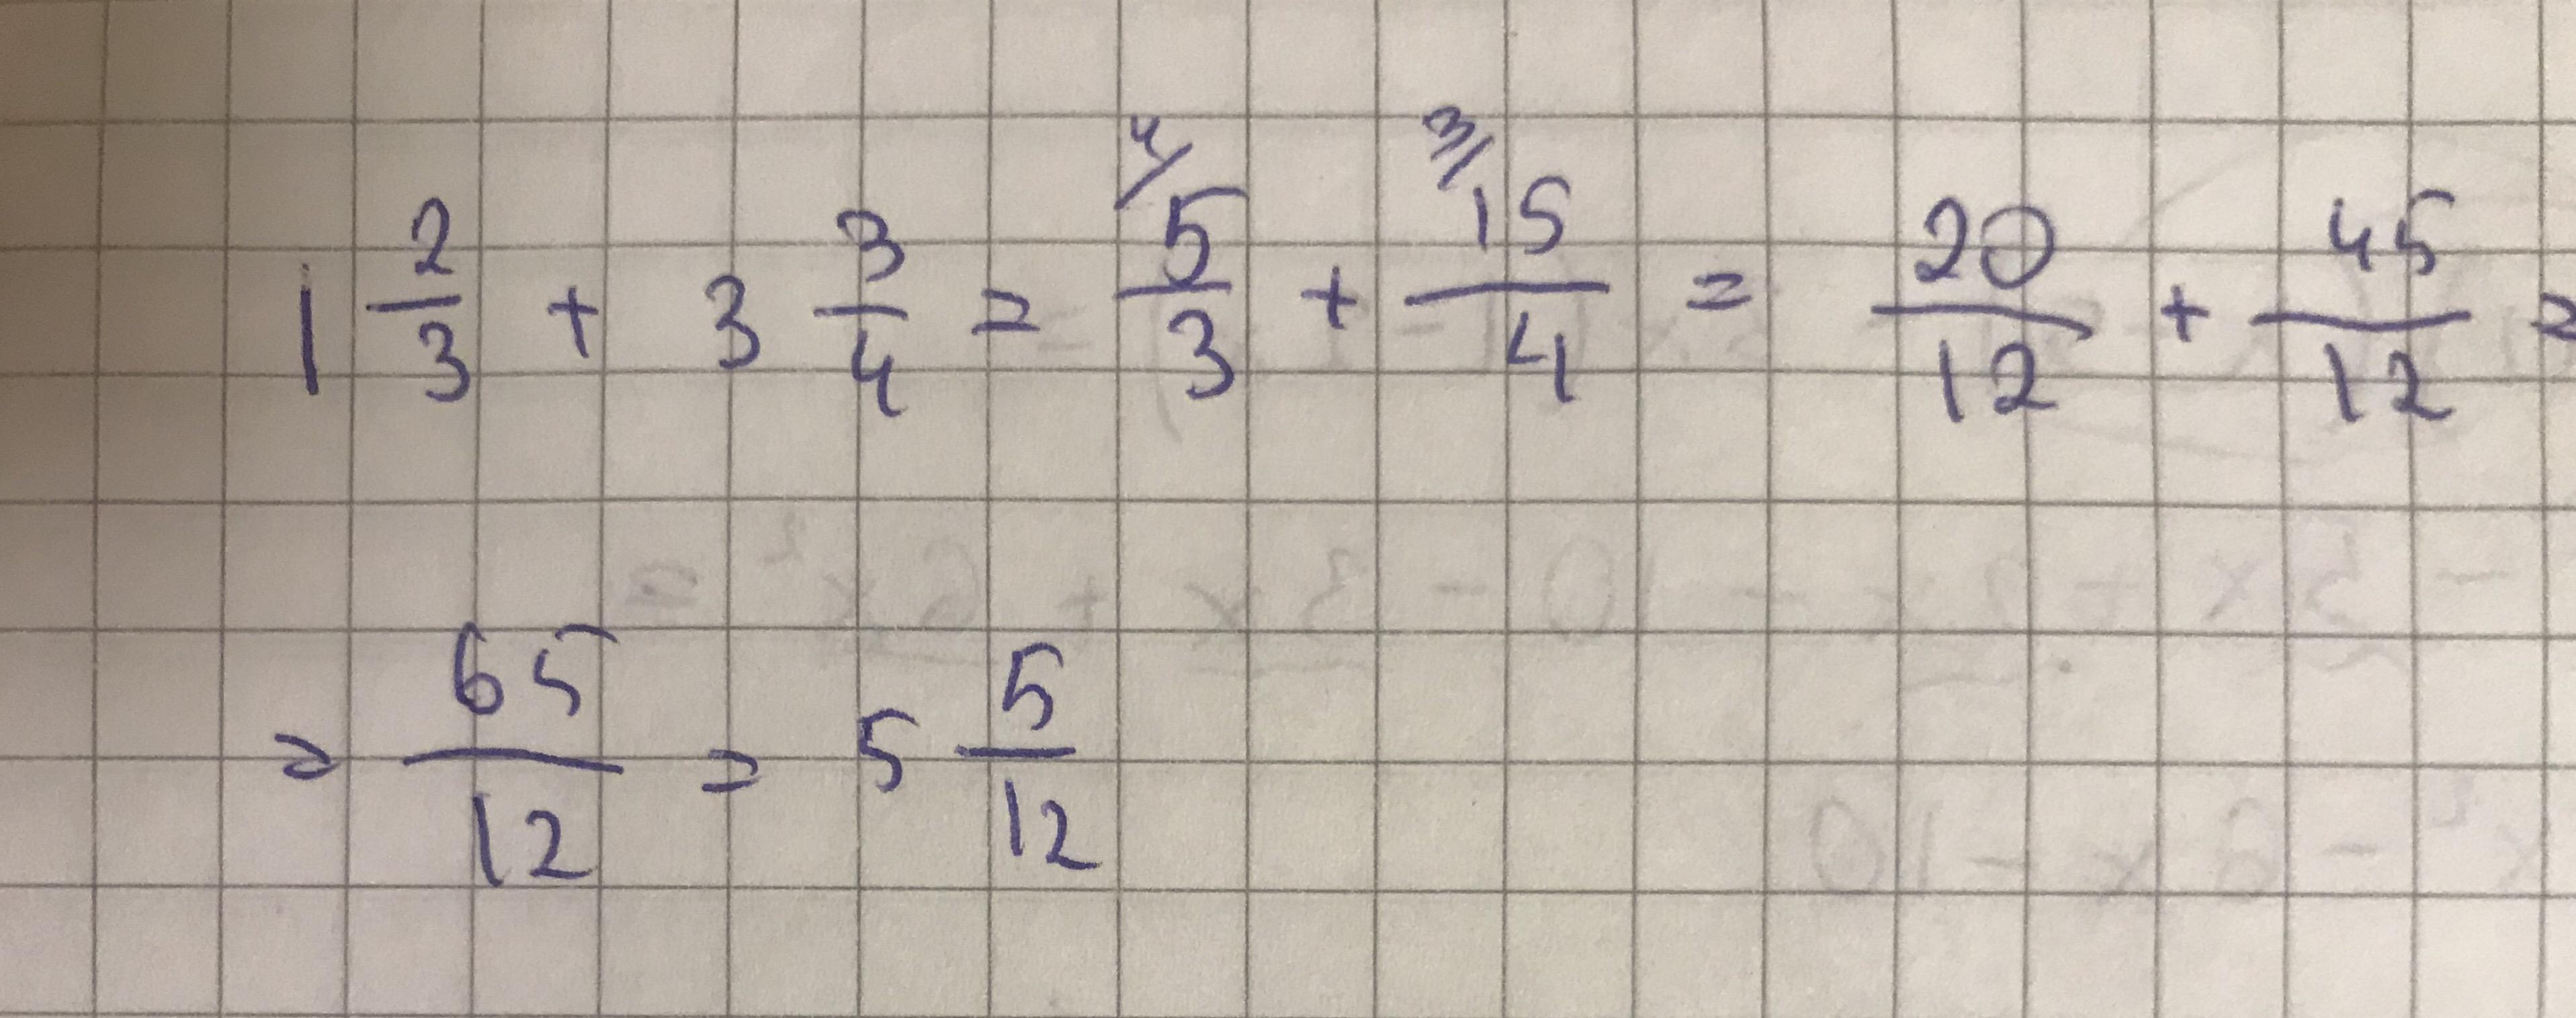 1 2/3 + 3 3/4 = 4/ 5/3 + 3/ 15/4 = 20/12 + 45/12 =
= 65/12 = 5 5/12